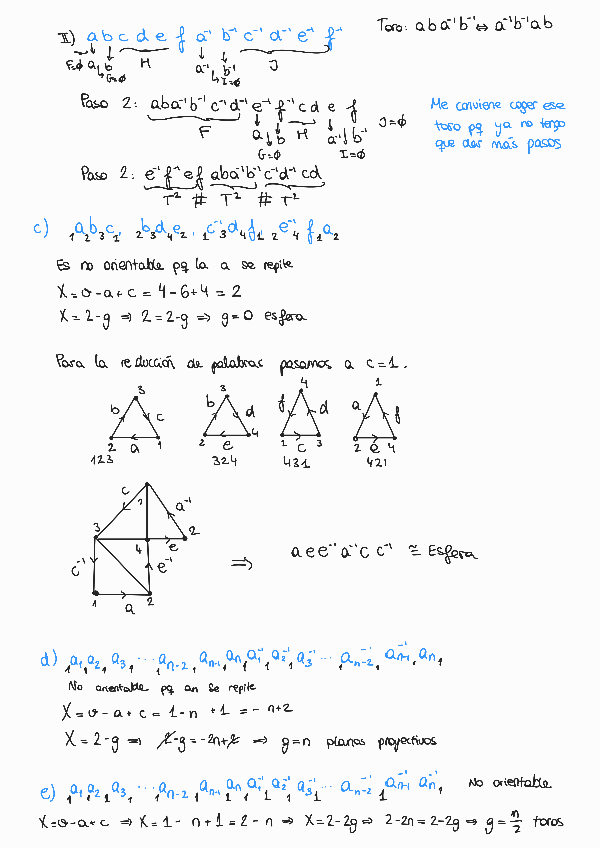 II) a b c d e f a⁻¹ b⁻¹ c⁻¹ d⁻¹ e⁻¹ f⁻¹
Toro: a b a⁻¹ b⁻¹ ↔ a⁻¹ b⁻¹ a b
F=∅ a b H a⁻¹ b⁻¹ J
G=∅ I=∅
Paso 2: a b a⁻¹ b⁻¹ c⁻¹ d⁻¹ e⁻¹ f⁻¹ c d e f
F a b H a⁻¹ b⁻¹ J=∅
G=∅ I=∅
Me conviene coger ese
toro pq ya no tengo
que dar más pasos
Paso 2: e⁻¹ f⁻¹ e f a b a⁻¹ b⁻¹ c⁻¹ d⁻¹ c d
T² # T² # T²
c) ₁a₂b₃c₁, ₂b₃d₄e₂, ₁c⁻¹₃d₄f₁, ₂e⁻¹₄f₁a₂
Es no orientable pq la a se repite
X = v - a + c = 4 - 6 + 4 = 2
X = 2 - g ⇒ 2 = 2 - g ⇒ g = 0 esfera
Para la reducción de palabras pasamos a c=1.
3 3 4 1
b c b d f d a f
2 a 1 2 e 4 1 c 3 2 e 4
123 324 431 421
c 1 a⁻¹
3 4 e 2
c⁻¹ e⁻¹
1 a 2
⇒ a e e⁻¹ a⁻¹ c c⁻¹ ≅ Esfera
d) ₁a₁₁a₂₁a₃₁ ⋯ a_{n-2}₁ a_{n-1}₁ a_n₁ a₁⁻¹₁ a₂⁻¹₁ a₃⁻¹₁ ⋯ a_{n-2}⁻¹₁ a_{n-1}⁻¹₁ a_n₁
No orientable pq an se repite
X = v - a + c = 1 - n + 1 = - n+2
X = 2 - g ⇒ 2 - g = -2n + 2 ⇒ g = n planos proyectivos
e) ₁a₁₁a₂₁a₃₁ ⋯ a_{n-2}₁ a_{n-1}₁ a_n₁ a₁⁻¹₁ a₂⁻¹₁ a₃⁻¹₁ ⋯ a_{n-2}⁻¹₁ a_{n-1}⁻¹ a_n⁻¹₁ No orientable
X = v - a + c ⇒ X = 1 - n + 1 = 2 - n ⇒ X = 2 - 2g ⇒ 2 - 2n = 2 - 2g ⇒ g = n/2 toros